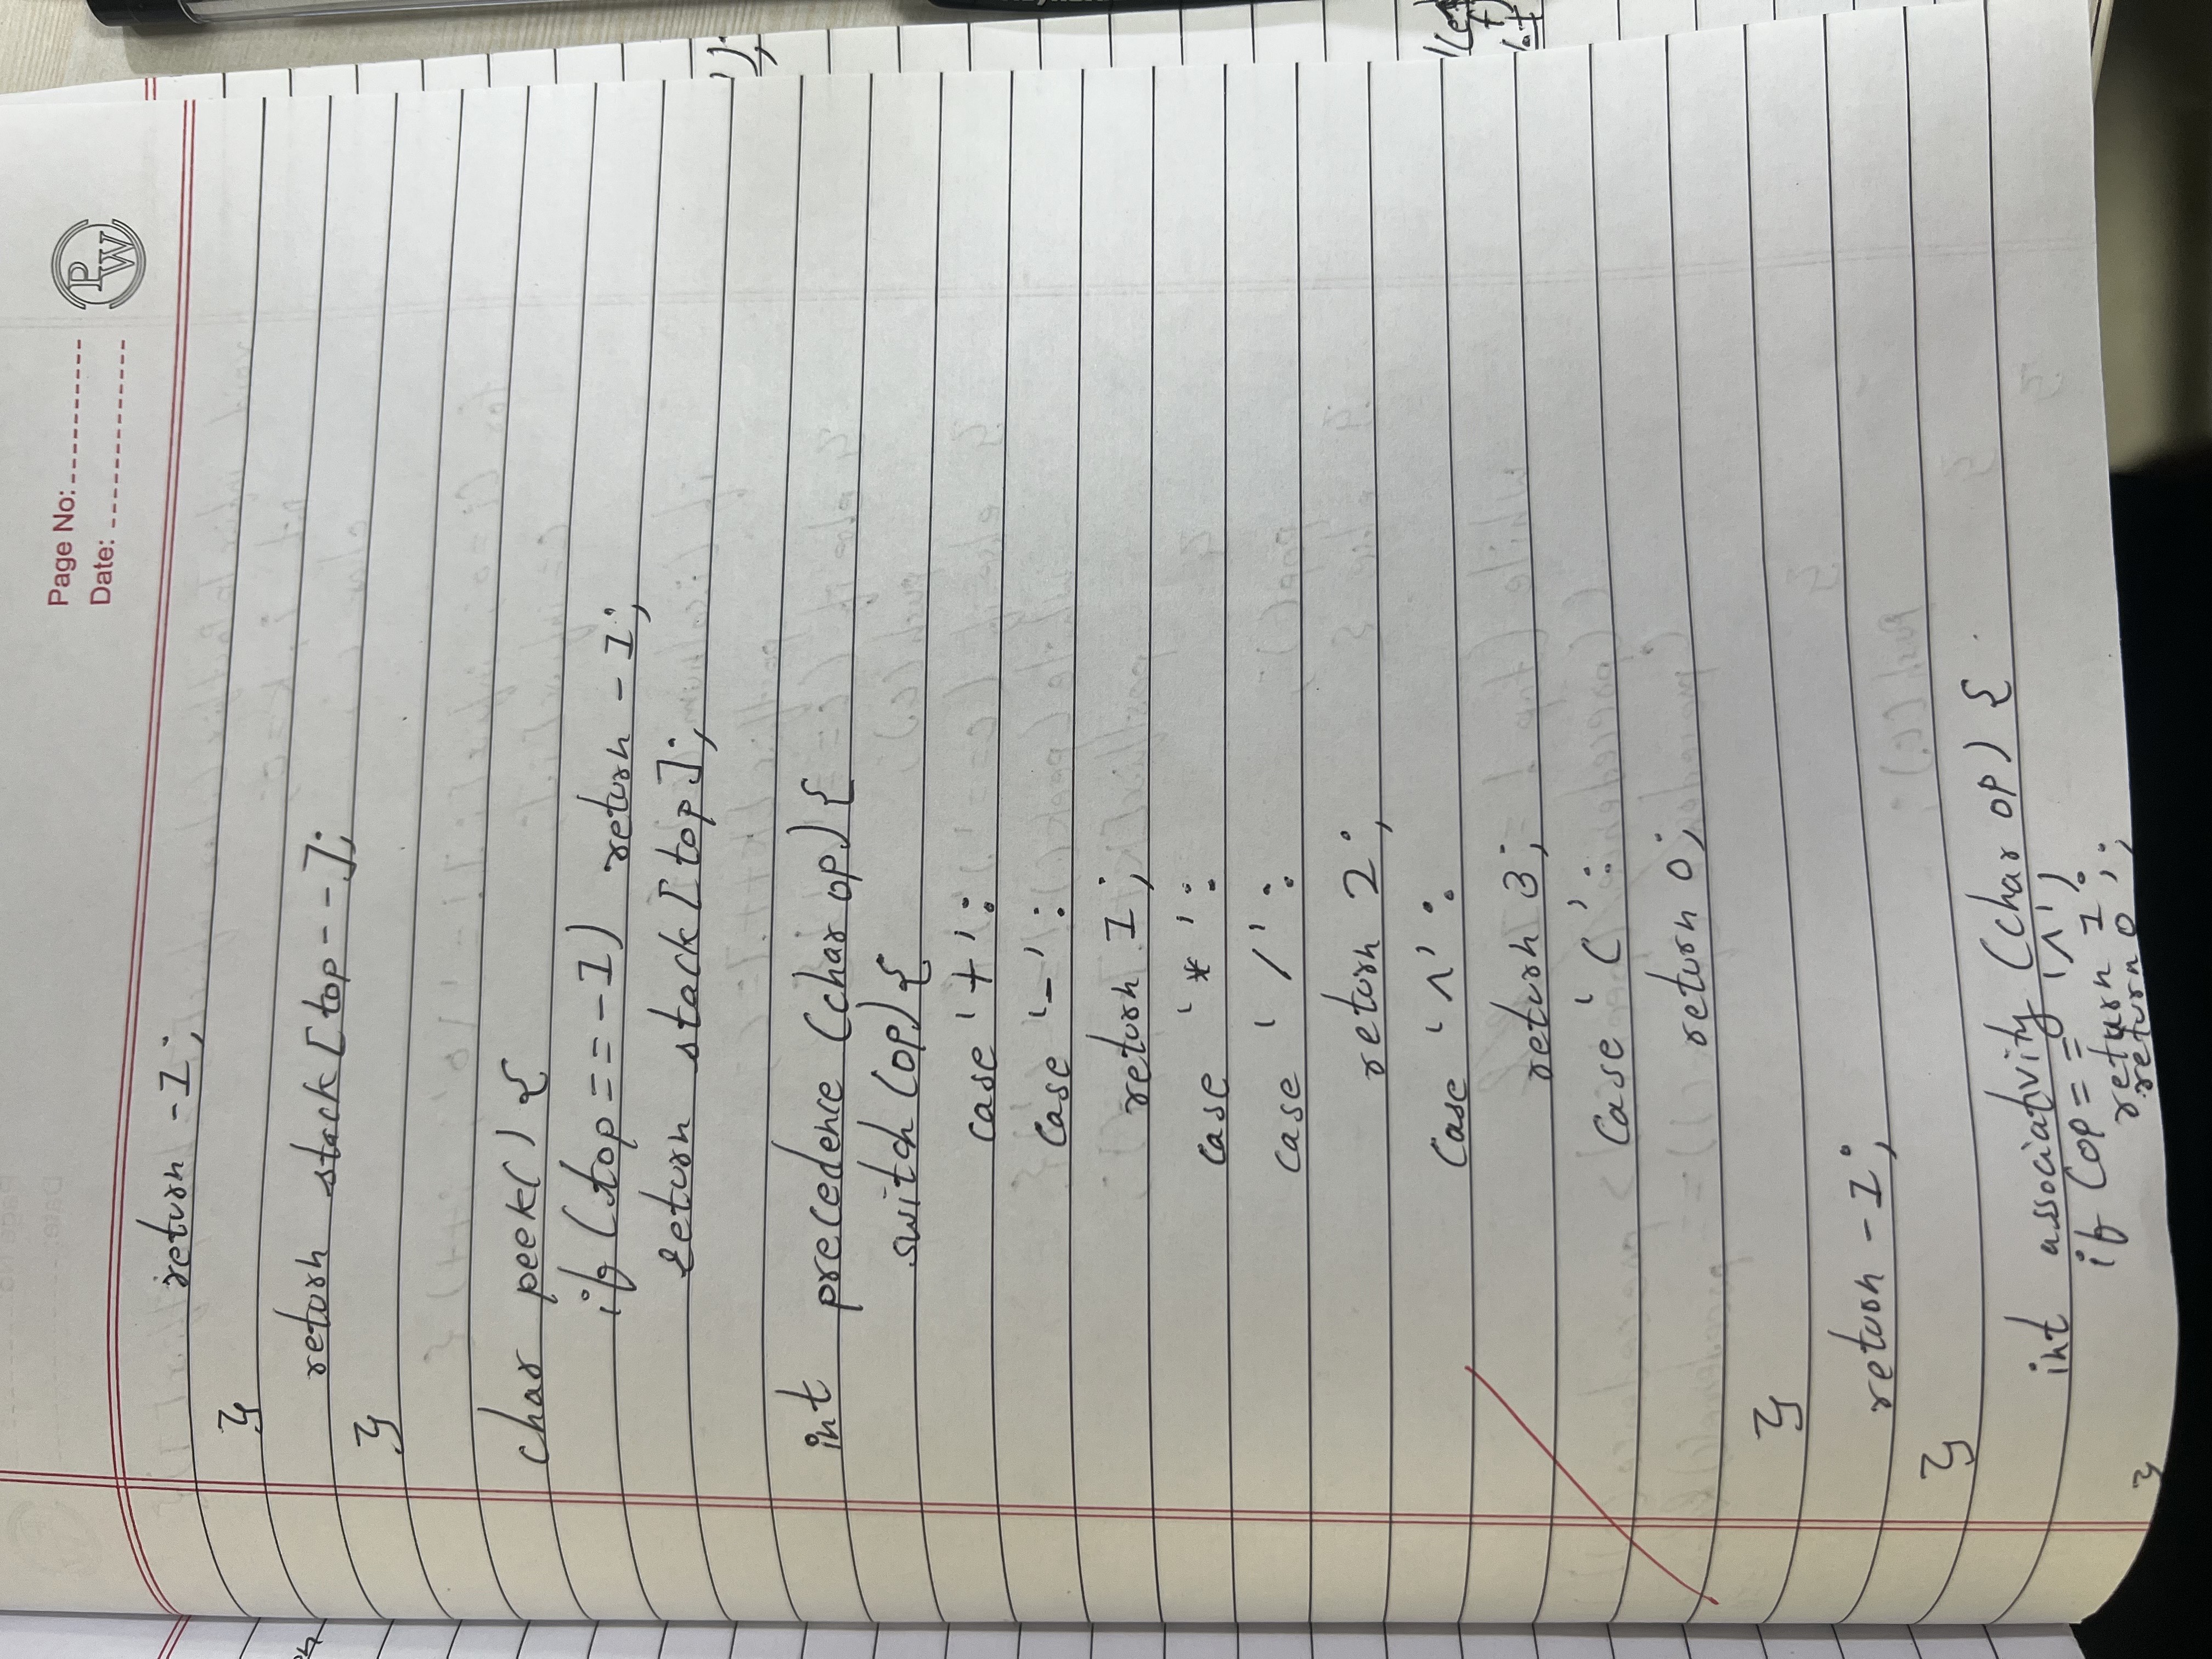 Page No:
Date:
PW
return -1;
}
return stack[top--];
}
char peek() {
if (top==-1) return -1;
return stack[top];
int precedence (char op) {
switch (op) {
case '+':
case '-':
return 1;
case '*':
case '/':
return 2;
case '^':
return 3;
case '(':
return 0;
}
return -1;
}
int associativity (char op) {
if (op== '^')
return 1;
return 0;
}